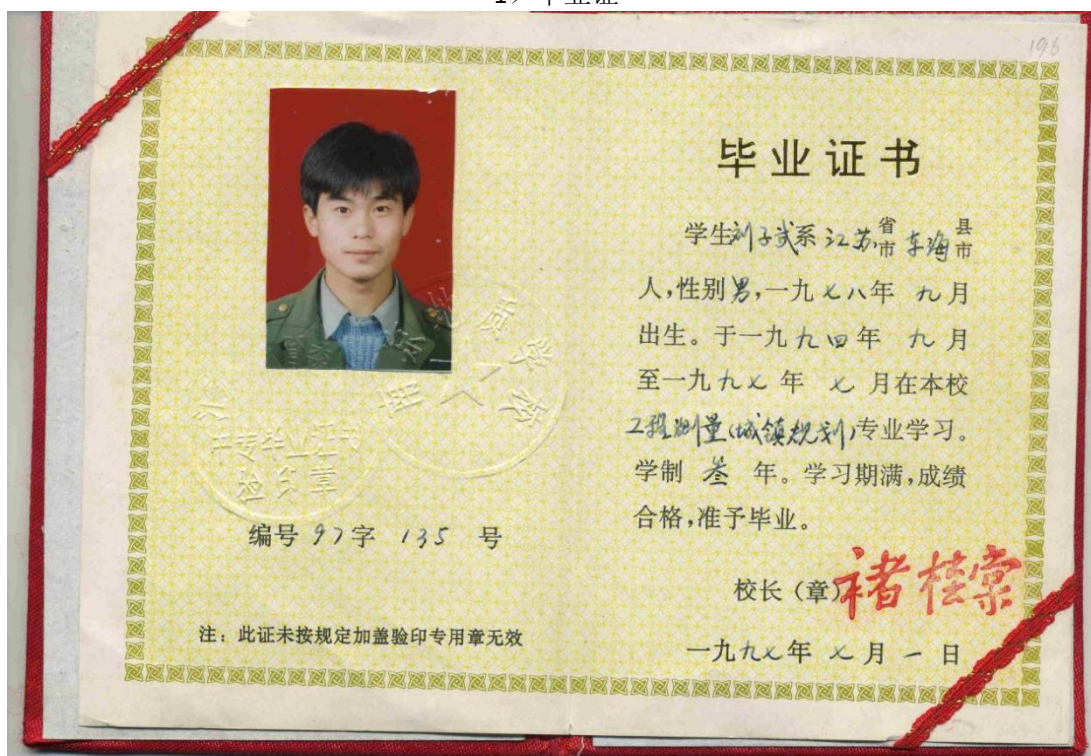 毕业证
196
编号 97字 135 号
注：此证未按规定加盖验印专用章无效
毕业证书
学生刘子武系江苏省市东海县市
人，性别男，一九七八年 九月
出生。于一九九四年 九月
至一九九七年 七月在本校
工程测量(城镇规划)专业学习。
学制 叁 年。学习期满，成绩
合格，准予毕业。
校长（章）褚桂棠
一九九七年 七月一日
中专毕业证书
验印章